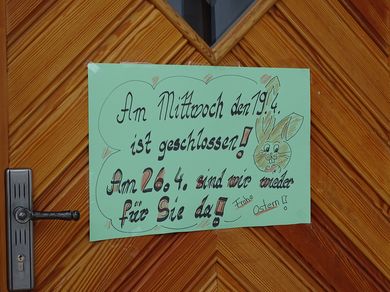 Am Mittwoch den 19.4.
ist geschlossen!
Am 26.4. sind wir wieder
für Sie da!
Frohe
Ostern!!